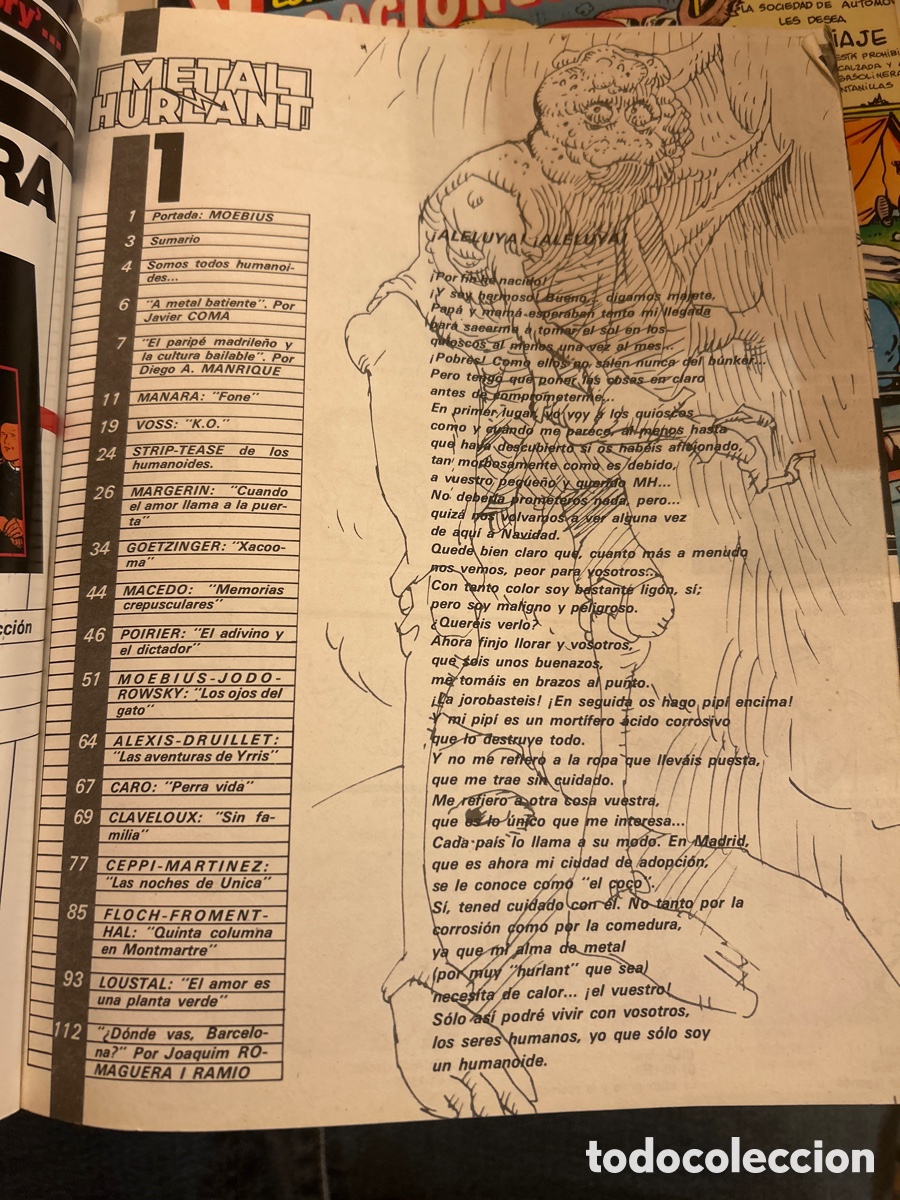 ory'...
RA
cción
LA SOCIEDAD DE AUTOMO
LES DESEA
IAJE
METAL
HURLANT
1
1 Portada: MOEBIUS
3 Sumario
4 Somos todos humanoi-
des...
6 "A metal batiente". Por
Javier COMA
7 "El paripé madrileño y
la cultura bailable". Por
Diego A. MANRIQUE
11 MANARA: "Fone"
19 VOSS: "K.O."
24 STRIP-TEASE de los
humanoides.
26 MARGERIN: "Cuando
el amor llama a la puer-
ta"
34 GOETZINGER: "Xacoo-
ma"
44 MACEDO: "Memorias
crepusculares"
46 POIRIER: "El adivino y
el dictador"
51 MOEBIUS-JODO-
ROWSKY: "Los ojos del
gato"
64 ALEXIS-DRUILLET:
"Las aventuras de Yrris"
67 CARO: "Perra vida"
69 CLAVELOUX: "Sin fa-
milia"
77 CEPPI-MARTINEZ:
"Las noches de Unica"
85 FLOCH-FROMENT-
HAL: "Quinta columna
en Montmartre"
93 LOUSTAL: "El amor es
una planta verde"
112 "¿Dónde vas, Barcelo-
na?" Por Joaquim RO-
MAGUERA I RAMIO
¡ALELUYA! ¡ALELUYA!
¡Por fin he nacido!
¡Y soy hermoso! Bueno... digamos majete,
Papá y mamá esperaban tanto mi llegada
para sacarma a tomar el sol en los
quioscos al menos una vez al mes...
¡Pobres! Como ellos no salen nunca del búnker...
Pero tengo que poner las cosas en claro
antes de comprometerme...
En primer lugar, yo voy a los quioscos
como y cuándo me parece, al menos hasta
que haya descubierto si os habéis aficionado,
tan morbosamente como es debido,
a vuestro pequeño y querido MH...
No debería prometeros nada, pero...
quizá nos volvamos a ver alguna vez
de aquí a Navidad.
Quede bien claro que, cuanto más a menudo
nos vemos, peor para vosotros...
Con tanto color soy bastante ligón, sí;
pero soy maligno y peligroso.
¿Queréis verlo?
Ahora finjo llorar y vosotros,
que sois unos buenazos,
me tomáis en brazos al punto.
¡La jorobasteis! ¡En seguida os hago pipí encima!
Y mi pipí es un mortífero ácido corrosivo
que lo destruye todo.
Y no me refiero a la ropa que lleváis puesta,
que me trae sin cuidado.
Me refiero a otra cosa vuestra,
que es lo único que me interesa...
Cada país lo llama a su modo. En Madrid,
que es ahora mi ciudad de adopción,
se le conoce como "el coco".
Sí, tened cuidado con él. No tanto por la
corrosión como por la comedura,
ya que mi alma de metal
(por muy "hurlant" que sea)
necesita de calor... ¡el vuestro!
Sólo así podré vivir con vosotros,
los seres humanos, yo que sólo soy
un humanoide.
todocoleccion